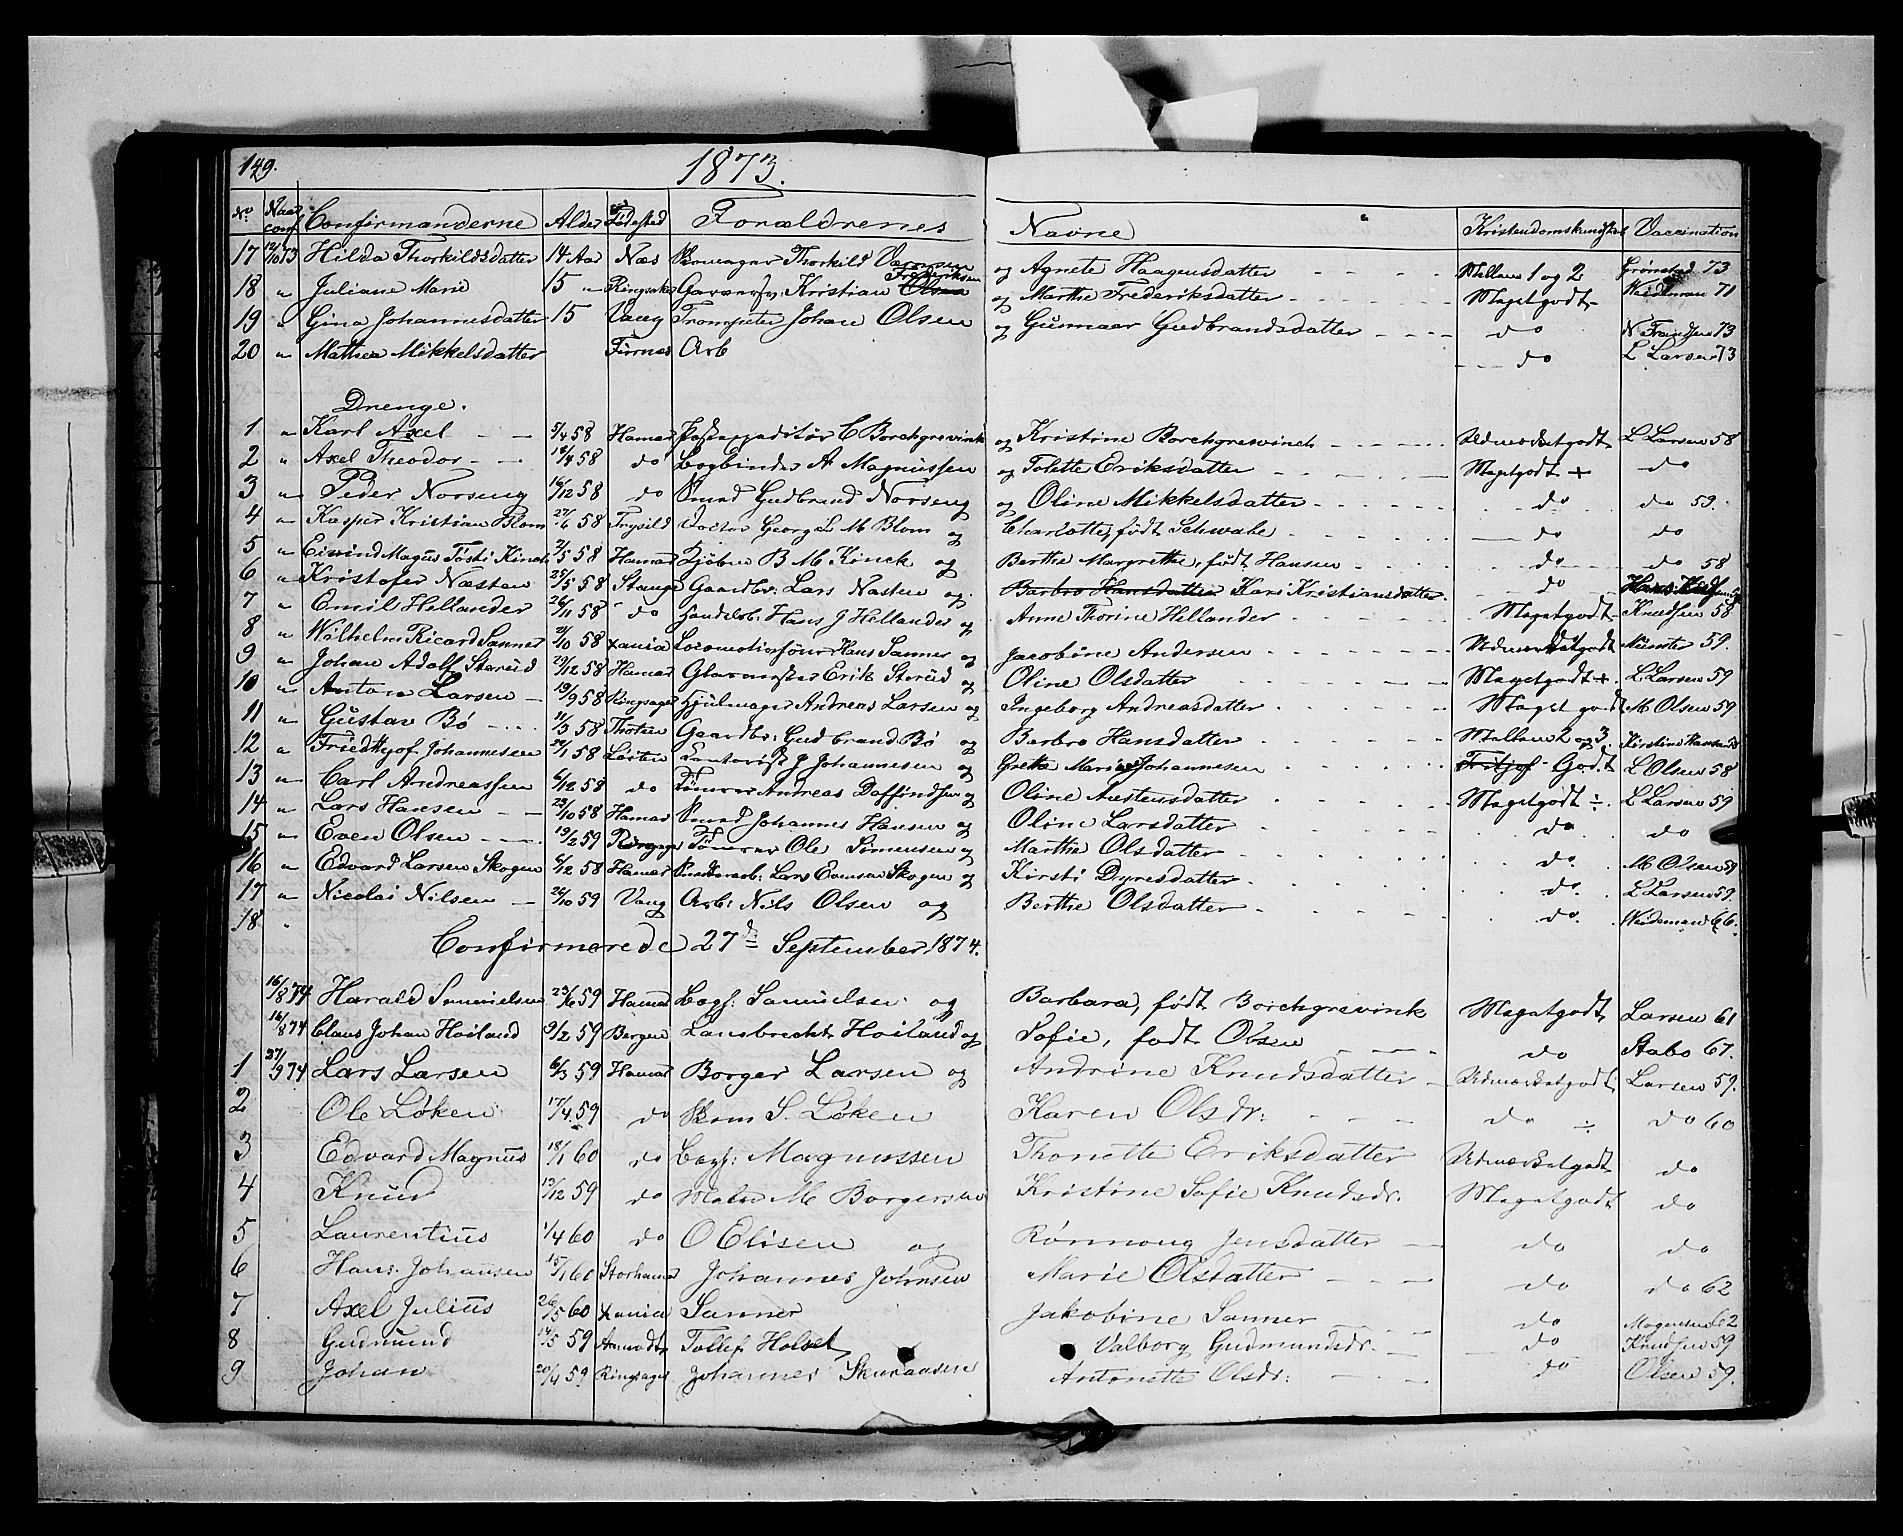 149. 1873.
No. Naar conf. Confirmanderne Alder Fødested Forældrenes Navne Kristendomskundskab Vaccination
17 12/10 73 Hilda Thorkildsdatter 14 Aar Næs Thorkild og Agnete Haagensdatter Mellem 1 og 2 Grønstad 73
18 " Juliane Marie 15 " Ringsaker Garversv: Kristian Olsen Frederiksen og Marthe Frederiksdatter Megetgodt Weideman 71
19 " Gina Johannesdatter 15 Vang Trompeter Johan Olsen og Gunnaer Gudbrandsdatter do N Frandsen 73
20 " Mathea Mikkelsdatter Furnes Arb do L Larsen 73
Drenge.
1 " Karl Axel 5/4 58 Hamar Postexpeditør C Borchgrevink og Kristine Borchgrevinch Udmærketgodt L Larsen 58
2 " Axel Theodor 14/4 58 do Bogbinder A Magnussen og Tolette Eriksdatter Megetgodt + do
3 " Peder Norseng 16/12 58 do Smed Gudbrand Norseng og Oline Mikkelsdatter do do 59.
4 " Kasper Kristian Blom 27/6 58 Trysild Doctor Georg L M Blom og Charlotte, født Schwabe do do
5 " Eivind Magnus Tosti Kinck 2/5 58 Hamar Kjøbm B M Kinck og Berthe Margrethe, født Hansen do do 58
6 " Kristofer Næsten 25/5 58 Stange Gaardbr: Lars Næsten og Barbro Hansdatter Kari Kristiansdatter do
7 " Emil Hellander 26/11 58 do Handelsb: Hans J Hellander og Anne Thorine Hellander Megetgodt Knudsen 58
8 " Wilhelm Ricard Sanner 2/10 58 Xania Locomotivfører Hans Sanner og Jacobine Andersen Udmærketgodt Münster 59.
9 " Johan Adolf Sterud 29/12 58 Hamar Glarmester Erik Sterud og Oline Olsdatter Megetgodt + L Larsen 59
10 " Anton Larsen 19/9 58 Ringsager Hjulmager Andreas Larsen og Ingeborg Andreasdatter Meget godt M Olsen 59
11 " Gustav Bø 11/3 58 Thoten Gaardbr: Gudbrand Bø og Barbro Hansdatter Mellem 2 og 3. Kirstine Hansen
12 " Friedthjof Johannesen 29/1 58 Løiten J Johannesen og Grethe Marie Johannesen Fritjof Godt L Olsen 58
13 " Carl Andreassen 6/12 58 do Tømrer Andreas og Oline Austensdatter Megetgodt ÷ L Larsen 59
14 " Lars Hansen 23/10 58 Hamar Smed Johannes Hansen og Oline Larsdatter do do
15 " Even Olsen 19/2 59 Ringsager Tømrer Ole Simensen og Marthe Olsdatter do M Olsen 59
16 " Edvard Larsen Skogen 6/12 58 Hamar Lars Evensen Skogen og Kirsti Dyresdatter do L Larsen 59.
17 " Nicolai Nilsen 26/10 59 Vang Arb: Nils Olsen og Berthe Olsdatter do Weideman 66.
18 "
Confirmerede 27de September 1874.
16/8 74 Harald Samuelsen 23/6 59 Hamar Bogh: Samuelsen og Barbara, født Borchgrevink Megetgodt Larsen 61
16/8 74 Claus Johan Hoiland 9/2 59 Bergen Lambrecht Hoiland og Sofie, født Olsen do Stabo 67.
1 27/9 74 Lars Larsen 6/3 59 Hamar Borger Larsen og Andrine Knudsdatter Udmærketgodt Larsen 59.
2 Ole Løken 17/4 59 do Skom S. Løken Karen Olsdr: do ÷ do 60
3 Edvard Magnus 18/1 60 do Bogh: Magnussen Thonette Eriksdatter Udmærketgodt do
4 Knud 13/12 59 do Maler M Borgersen Kristine Sofie Knudsdr. Megetgodt do
5 Laurentius 1/4 60 do O Elisen og Rønnoug Jensdatter do do
6 Hans Johansen 15/1 60 Storhamar Johannes Johnsen Marie Olsdatter do do 62
7 Axel Julius 26/5 60 Xania Sanner Jakobine Sanner do Mogensen 62
8 Gudmund 14/5 59 Aamodt Tollef Holset Valborg Gudmundsdr. do Knudsen 59
9 Johan 20/4 59 Ringsager Johannes Antonette Olsdr: do Olsen 59.